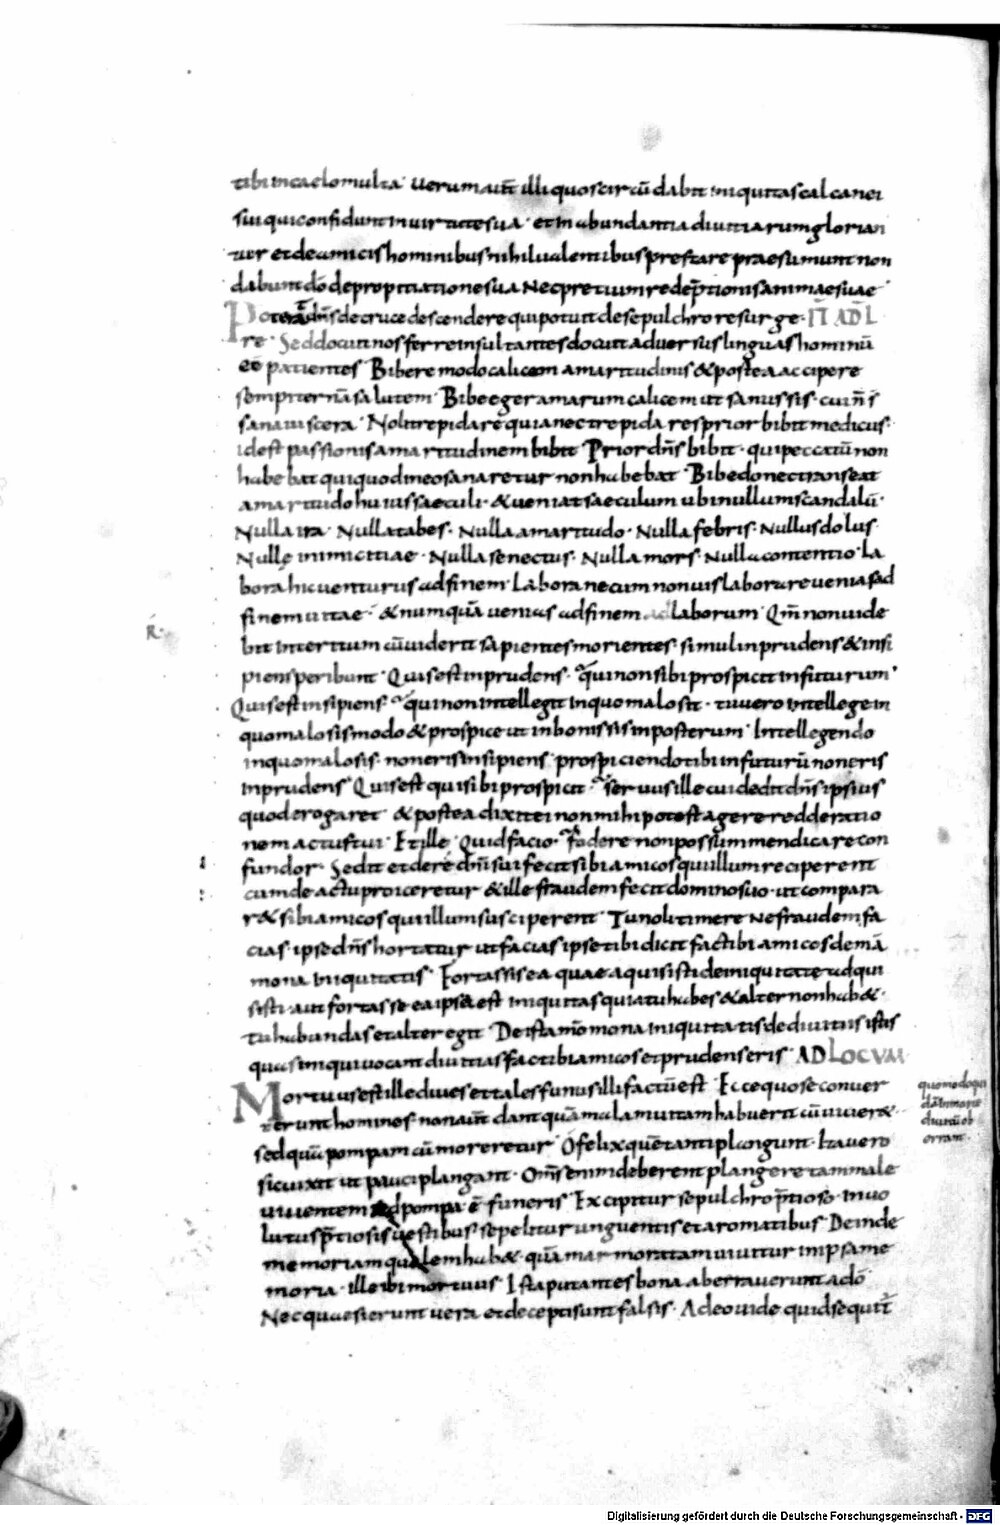 tibi in caelo multa · Uerum aut̄ illi quos circū dabit iniquitas calcanei
sui qui confidunt in uirtute sua · et in abundantia diuitiarum glorian
tur et de amicis hominibus nihil ualentibus prestare praesumunt non
dabunt dō depropitiatione sua Nec pretium redēptionis animae suae
Poterat dn̄s de cruce descendere qui potuit de sepulchro resurge · IT AD L
re · Sed docuit nos ferre insultantes docuit aduersus linguas hominū
eē patientes Bibere modo calicem amaritudinis & postea accipere
sempiternā salutem · Bibe eger amarum calicem ut sanus sis · cui n̄ ē
sana uiscera · Noli trepidare quia nec trepidares prior bibit medicus ·
idest passionis amaritudinem bibit Prior dn̄s bibit · qui peccatū non
habebat qui quod in eo sanaretur non habebat · Bibe donec transeat
amaritudo huius saeculi · & ueniat saeculum ubi nullum scandalū ·
Nulla ira · Nulla tabes · Nulla amaritudo · Nulla febris · Nullus dolus
Nullę inimicitiae · Nulla senectus · Nulla mors · Nulla contentio · La
bora hic uenturus ad finem · Labora nec cum non uis laborare uenias ad
finem uitae · & numquā uenias ad finem ad laborum · Qm̄ non uide
bit interitum cū uiderit sapientes morientes · simul inprudens & insi
R·
piens peribunt · Quis est inprudens · qui non sibi prospicit in futurum
Quis est insipiens · qui non intellegit in quo malo sit · tu uero intellege in
quo malo sis modo & prospice ut in bonis sis in posterum · Intellegendo
in quo malo sis · non eris insipiens prospiciendo tibi in futurū non eris
inprudens Quis est qui sibi prospicit · seruus ille cui dedit dn̄s ipsius
quod erogaret · & postea dixit ei non mihi potest agere redde ratio
nem actus tui · Et ille · Quid facio · Fodere non possum mendicare con
fundor · Sed it et de rē dn̄i sui fecit sibi amicos qui illum reciperent
cum de actu proiceretur & ille fraudem fecit domino suo · ut compara
r& sibi amicos qui illum susciperent · Tu noli timere ne fraudem fa
cias · ipse dn̄s hortatur ut facias ipse tibi dicit fac tibi amicos de mā
mona iniquitatis · Fortassis ea quae aquisisti de iniquitate adqui
sisti · aut fortasse ea ipsa est iniquitas quia tu habes & alter non hab& ·
tu habundas et alter egit · De ista māmona iniquitatis de diuitiis istis
quas iniqui uocant diuitias fac tibi amicos et prudens eris · AD LOCUM
Mortuus est ille diues et tales funus illi factū est · Ecce quo se conuer
terunt homines · non aut̄ dant quā mala m uitam habuerit cū uiuer&
quomodo qui
dābin morte
diuitiū ob
errant ·
sed quā pompam cū moreretur · O felix quē tanti plangunt · Ita uero
sic uixit ut pauci plangant · Om̄s enim deberent plangere tam male
uiuentem sed pompa ē funeris · Excipitur sepulchro p̄tioso · Inuo
lutus p̄tiosis uestibus sepelitur unguentis et aromatibus · Deinde
memoriam qualem hab& · quā marmoratam uiuitur in ipsa me
moria · ille ibi mortuus · Ista putantes bona aberrauerunt a dō
Nec quaesierunt uera · et decepti sunt falsis · Adeo uide quid sequit̄
Digitalisierung gefördert durch die Deutsche Forschungsgemeinschaft - DFG